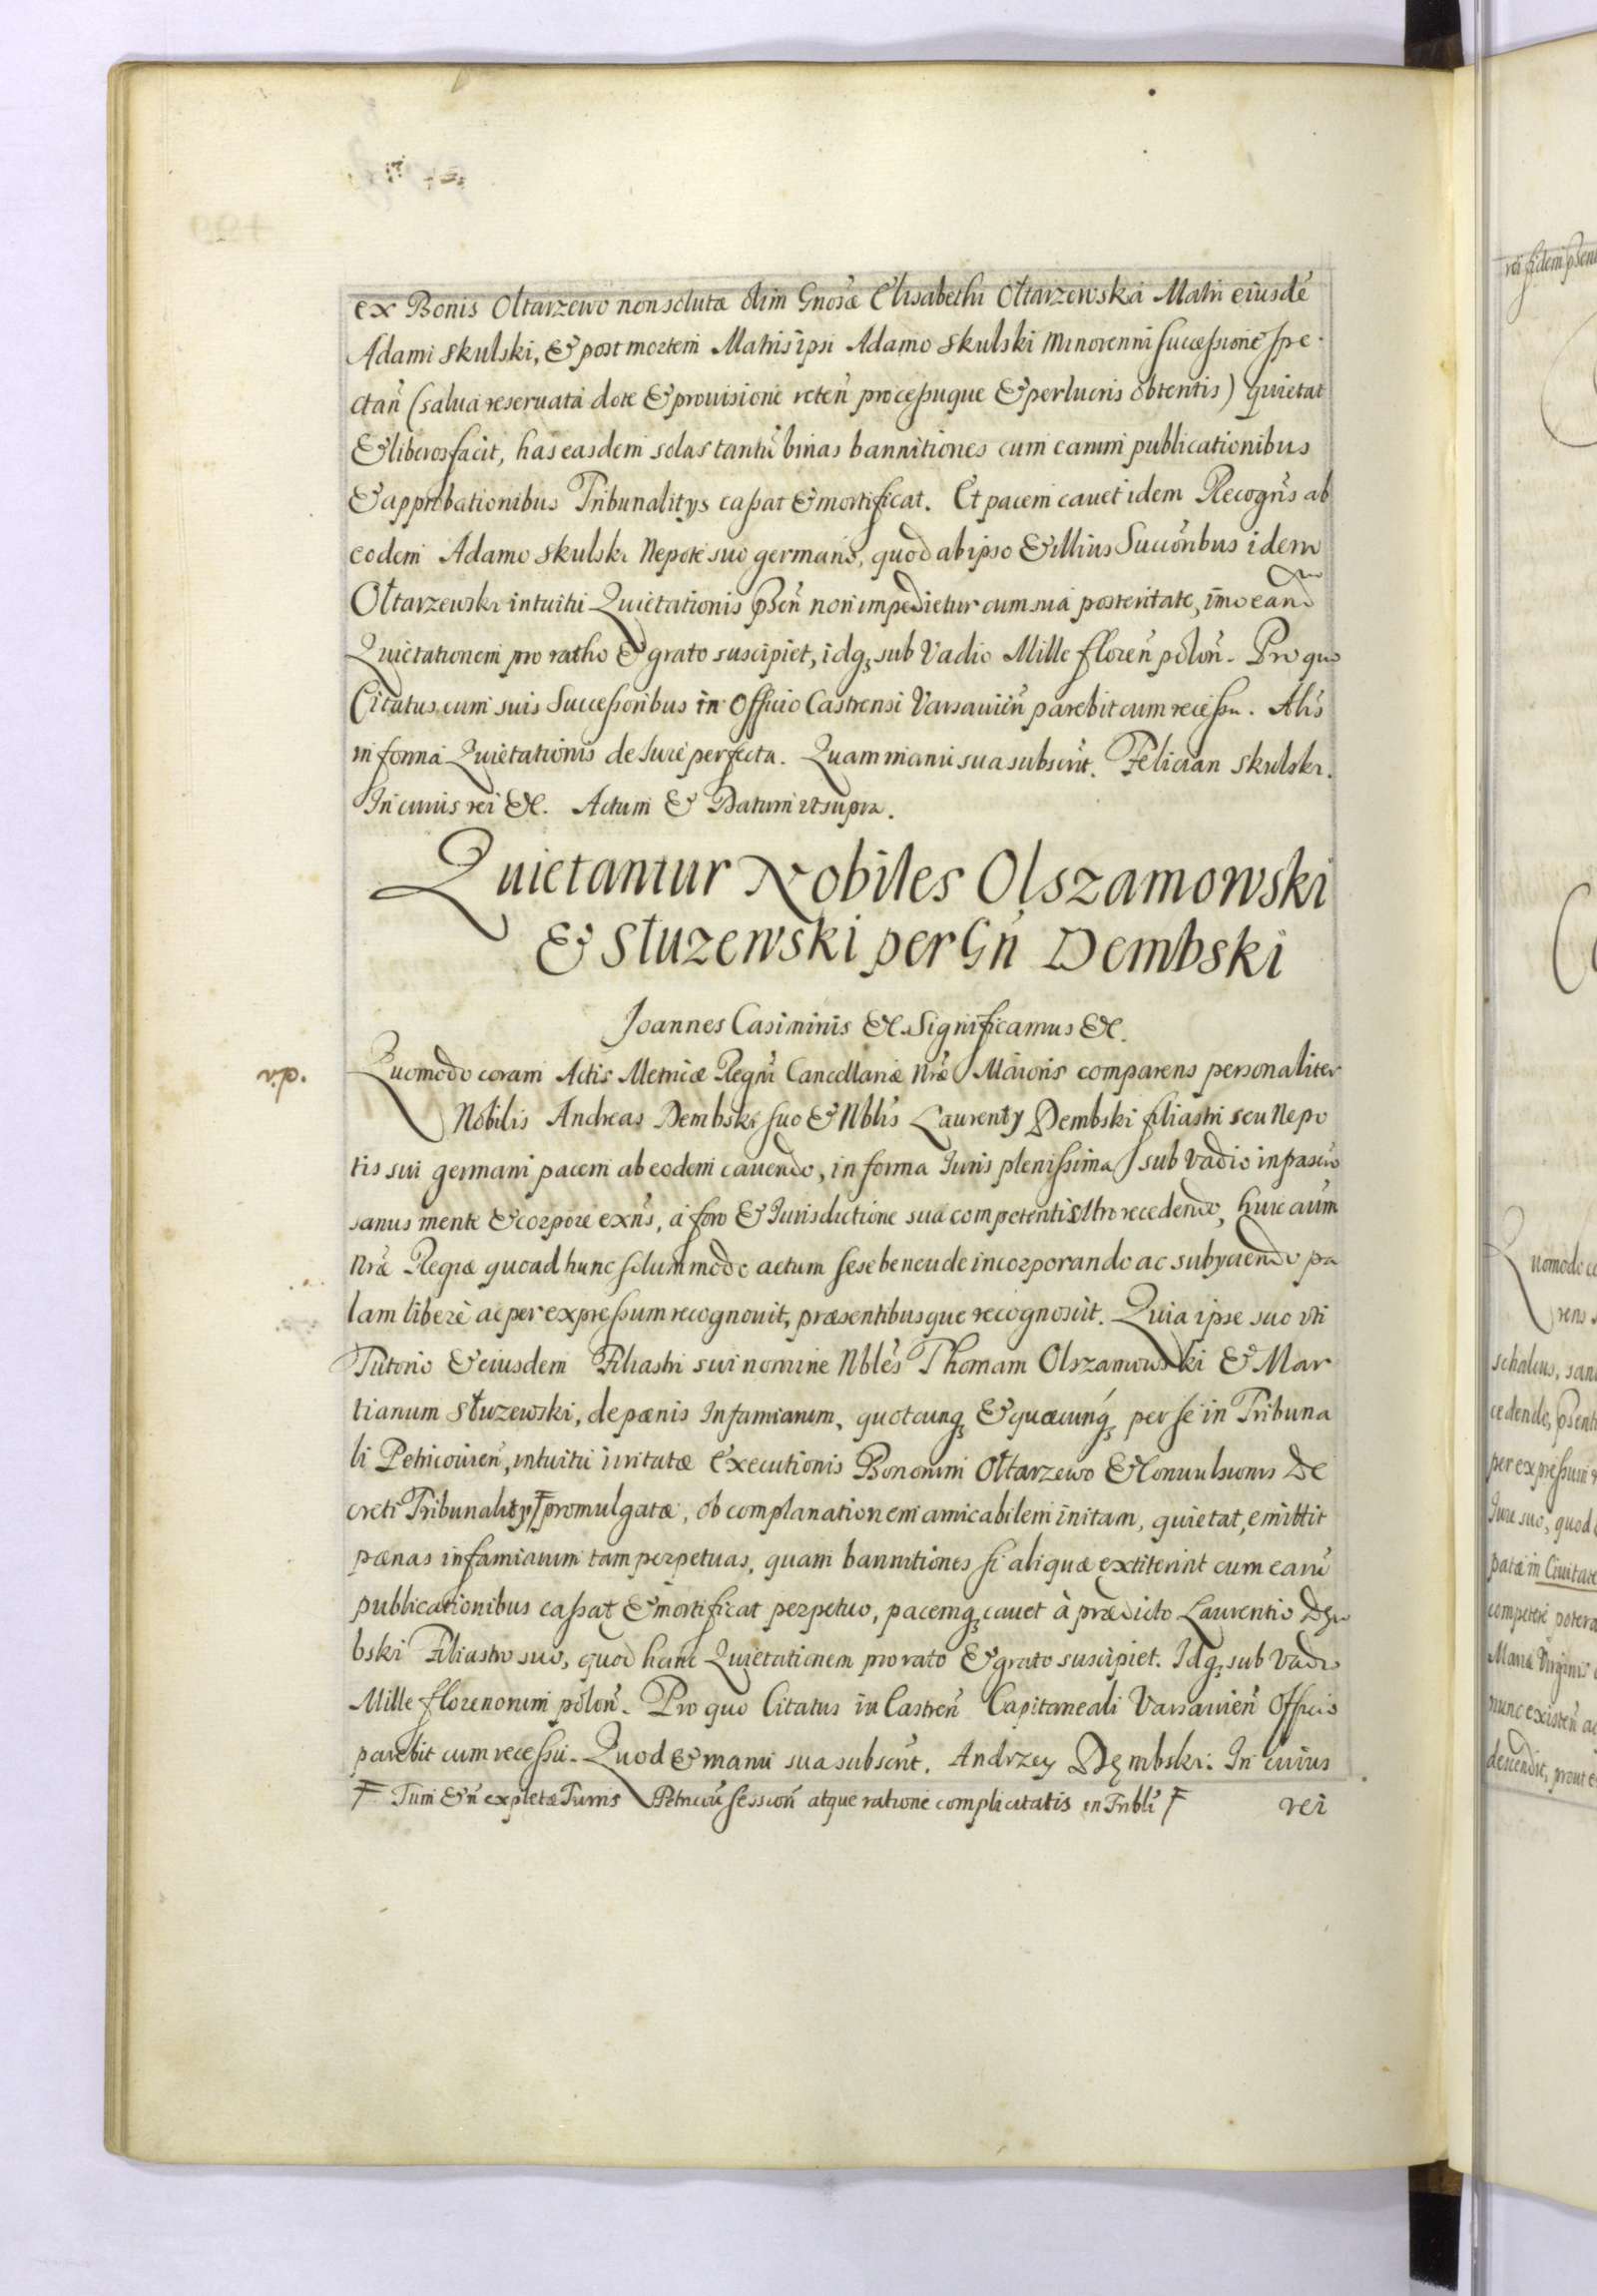 ex Bonis Ołtarzewo non solutæ olim Gnosæ Elisabethi Ołtarzewska Matri eiusdẽ
Adami Skulski, & post mortem Matris ipsi Adamo Skulski Minorenni successionẽ spe-
ctañ (salua reseruata dote & prouisione reteñ processuque & perlucris obtentis) quietat
& liberos facit, has easdem solas tantũ binas bannitiones cum earum publicationibus
& approbationibus Tribunalitys cassat & mortificat. Et pacem cauet idem Recogñs ab
eodem Adamo Skulski Nepote suo germano, quod ab ipso & illius Succõribus idem
Ołtarzewski intuitu Quietationis p̃señ non impedietur cum sua posteritate, im̃o eand
Quietationem pro ratho & grato suscipiet, idq; sub Vadio Mille floreñ poloñ. Pro quo
Citatus cum suis Successoribus in Officio Castrensi Varsauień parebit cum recessu. Alis
in forma Quietationis de Iure perfecta. Quam manu sua subscrit. Felician Skulski.
In cuius rei &c. Actum & Datum vt supra.
Quietantur Nobiles Olszamowski
& Słuzewski per Gñ Dembski
Joannes Casimirus &c. Significamus &c.
Quomodo coram Actis Metricæ Regni Cancellariæ Nr̃æ Maioris comparens personaliter
Nobilis Andreas Dembski suo & Nblis Laurenty Dembski filiastri seu Nepo
tis sui germani pacem ab eodem cauendo, in forma Iuris plenissima sub vadio infrascrõ
sanus mente & corpore exñs, a foro & Iurisdictione sua competenti vltro recedendo, huic aũm
Nr̃æ Regiæ quoad hunc solummodo actum sese beneuole incorporando ac subyciendo pa
lam libere ac per expressum recognouit, præsentibusque recognoscit. Quia ipse suo vti
Tutorio & eiusdem Filiastri sui nomine Nbles Thomam Olszamowski & Mar
tianum Słuzewski, de pænis Infamiarum, quotcunq; & quæcunq; per se in Tribuna
li Petricouień, intuitu irritatæ Executionis Bonorum Ołtarzewo & Conuulsionis De
creti Tribunality Ŧ promulgatæ, ob complanationem amicabilem initam, quietat, emittit
pænas infamiarum tam perpetuas, quam bannitiones si aliquæ extiterint cum earũ
publicationibus cassat & mortificat perpetuo, pacemq; cauet à prædicto Laurentio Dem
bski Filiastro suo, quod hanc Quietationem pro rato & grato suscipiet. Idq; sub Vadio
Mille florenorum poloñ. Pro quo Citatus in Castreñ Capitaneali Varsauień Officio
parebit cum recessu. Quod & manu sua subscrit. Andrzey Dęmbski. In cuius
Ŧ Tum & ñ expletæ Turris Petricoũ sessioñ atque ratione complicitatis in Tribli Ŧ
rei